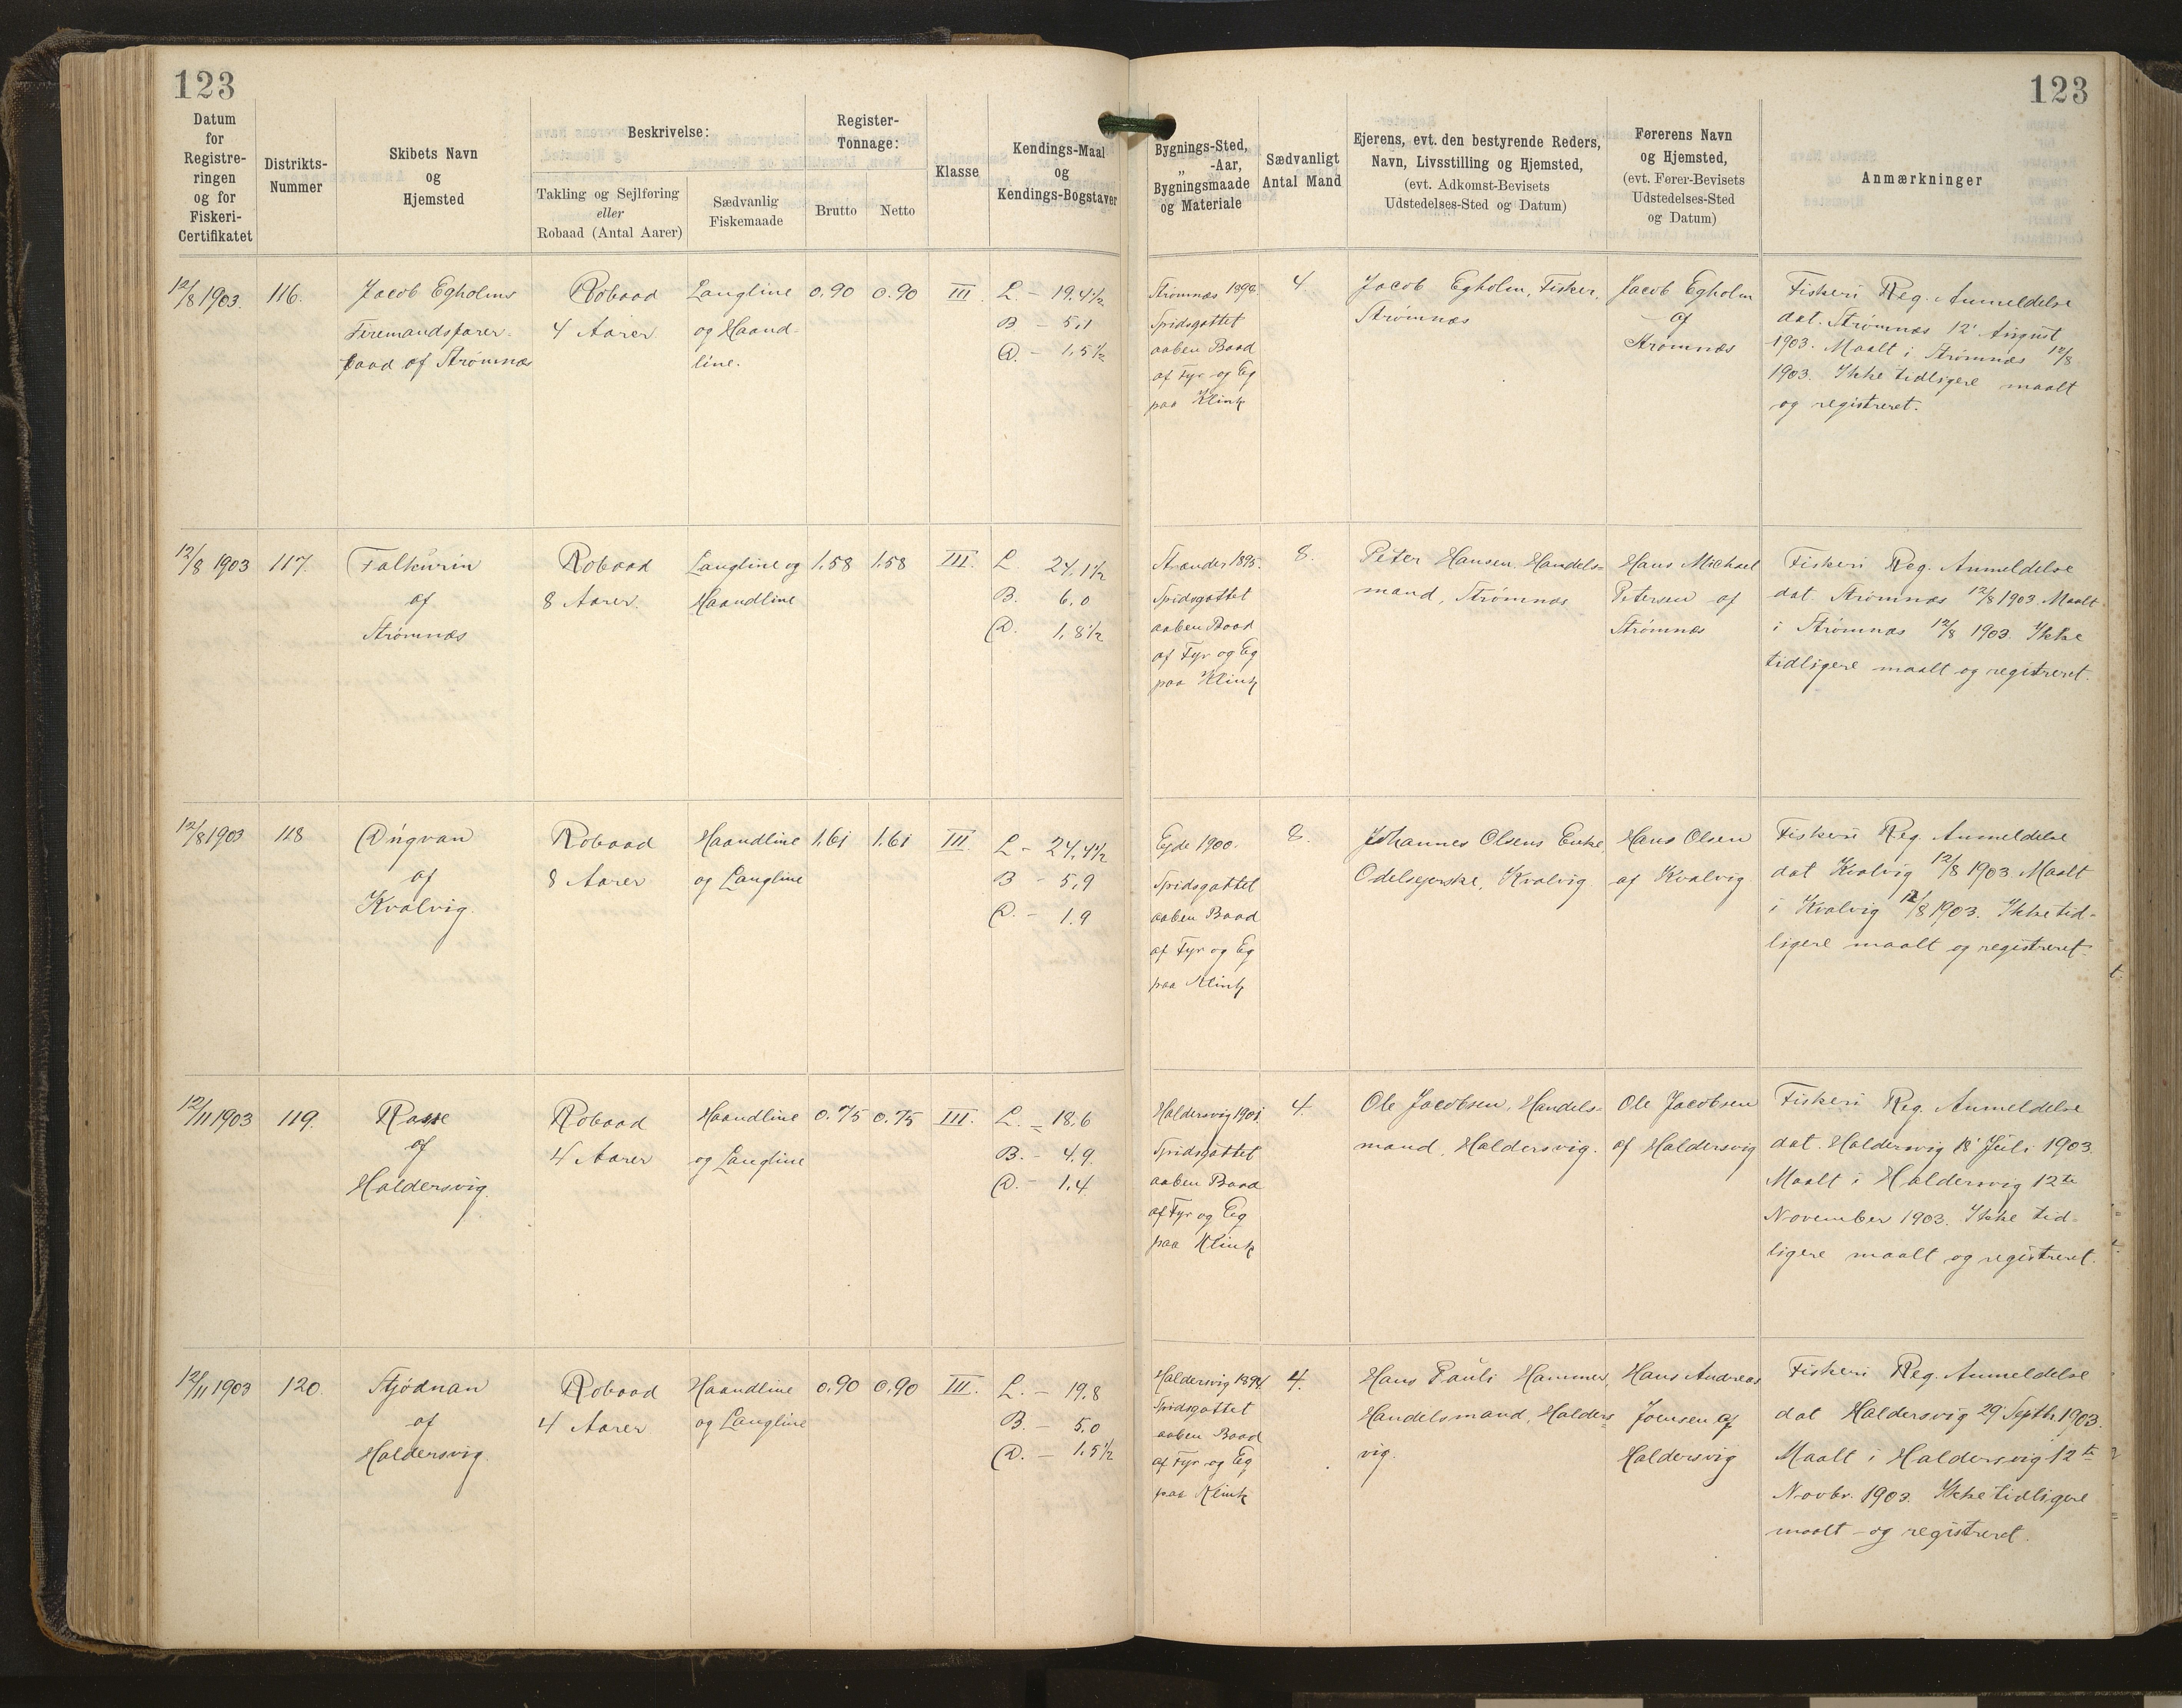 123
123
Datum
for
Registre-
ringen
og for
Fiskeri-
Certifikatet
Distrikts-
Nummer
Skibets Navn
og
Hjemsted
Beskrivelse:
Takling og Sejlføring
eller
Robaad (Antal Aarer)
Sædvanlig
Fiskemaade
Register-
Tonnage:
Brutto
Netto
Klasse
Kendings-Maal
og
Kendings-Bogstaver
Bygnings-Sted,
„ -Aar,
Bygningsmaade
og Materiale
Sædvanligt
Antal Mand
Ejerens, evt. den bestyrende Reders,
Navn, Livsstilling og Hjemsted,
(evt. Adkomst-Bevisets
Udstedelses-Sted og Datum)
Førerens Navn
og Hjemsted,
(evt. Fører-Bevisets
Udstedelses-Sted
og Datum)
Anmærkninger
12/8 1903.
116.
Jacob Egholms
Firemandsfarer-
baad af Strømnæs
Robaad
4 Aarer
Langline
og Haand-
line.
0.90
0.90
III
L. - 19.4½
B - 5,1
D. - 1,5½
Strømnæs 1898.
Spidsgattet
aaben Baad
af Fyr og Eg
paa Klink
4
Jacob Egholm, Fisker,
Strømnæs
Jacob Egholm
af
Strømnæs
Fiskeri Reg. Anmeldelse
dat. Strømnæs 12' August
1903. Maalt i Strømnæs 12/8
1903. Ikke tidligere maalt
og registreret.
12/8 1903
117.
Falkurin
af
Strømnæs
Robaad
8 Aarer.
Langline og
Haandline
1.58
1.58
III.
L. 24,1½
B. 6,0
D. 1,8½
Strander 1895.
Spidsgattet
aaben Baad
af Fyr og Eg
paa Klink
8.
Peter Hansen, Handels=
mand, Strømnæs
Hans Michael
Petersen af
Strømnæs
Fiskeri Reg. Anmeldelse
dat. Strømnæs 12/8 1903. Maalt
i Strømnæs 12/8 1903. Ikke
tidligere maalt og registreret.
12/8 1903
118
Dúgvan
af
Kvalvig.
Robaad
8 Aarer
Haandline
og Langline
1.61
1.61
III.
L - 24,4½
B - 5,9
D. - 1.9
Ejde 1900.
Spidsgattet
aaben Baad
af Fyr og Eg
paa Klink
8.
Johannes Olsens Enke,
Odelsejerske, Kvalvig
Hans Olsen
af Kvalvig
Fiskeri Reg. Anmeldelse
dat Kvalvig 12/8 1903 Maalt
i Kvalvig 12/8 1903. Ikke tid-
ligere maalt og registreret.
12/11 1903
119.
af
Haldersvig.
Robaad
4 Aarer
Haandline
og Langline
0.75
0.75
III.
L. - 18.6
B. - 4.9.
D. - 1.4
Haldersvig 1901.
Spidsgattet
aaben Baad
af Fyr og Eg
paa Klink
4.
Ole Jacobsen, Handels=
mand, Haldersvig.
Ole Jacobsen
af Haldersvig
Fiskeri Reg. Anmeldelse
dat. Haldersvig 18' Juli 1903.
Maalt i Haldersvig 12te
November 1903. Ikke tid=
ligere maalt og registreret.
12/11 1903
120.
Stjódnan
af
Haldersvig.
Robaad
4 Aarer
Haandline
og Langline
0.90
0.90
III.
L. - 19,8
B. - 5,0
D. - 1,5½
Haldersvig 1894
Spidsgattet
aaben Baad
af Fyr og Eg
paa Klink
4.
Hans Pauli Hammer,
Handelsmand, Halders=
vig.
Hans Andreas
Joensen af
Haldersvig
Fiskeri Reg. Anmeldelse
dat Haldersvig 29' Septbr 1903.
Maalt i Haldersvig 12te
Novbr. 1903. Ikke tidligere
maalt og registreret.